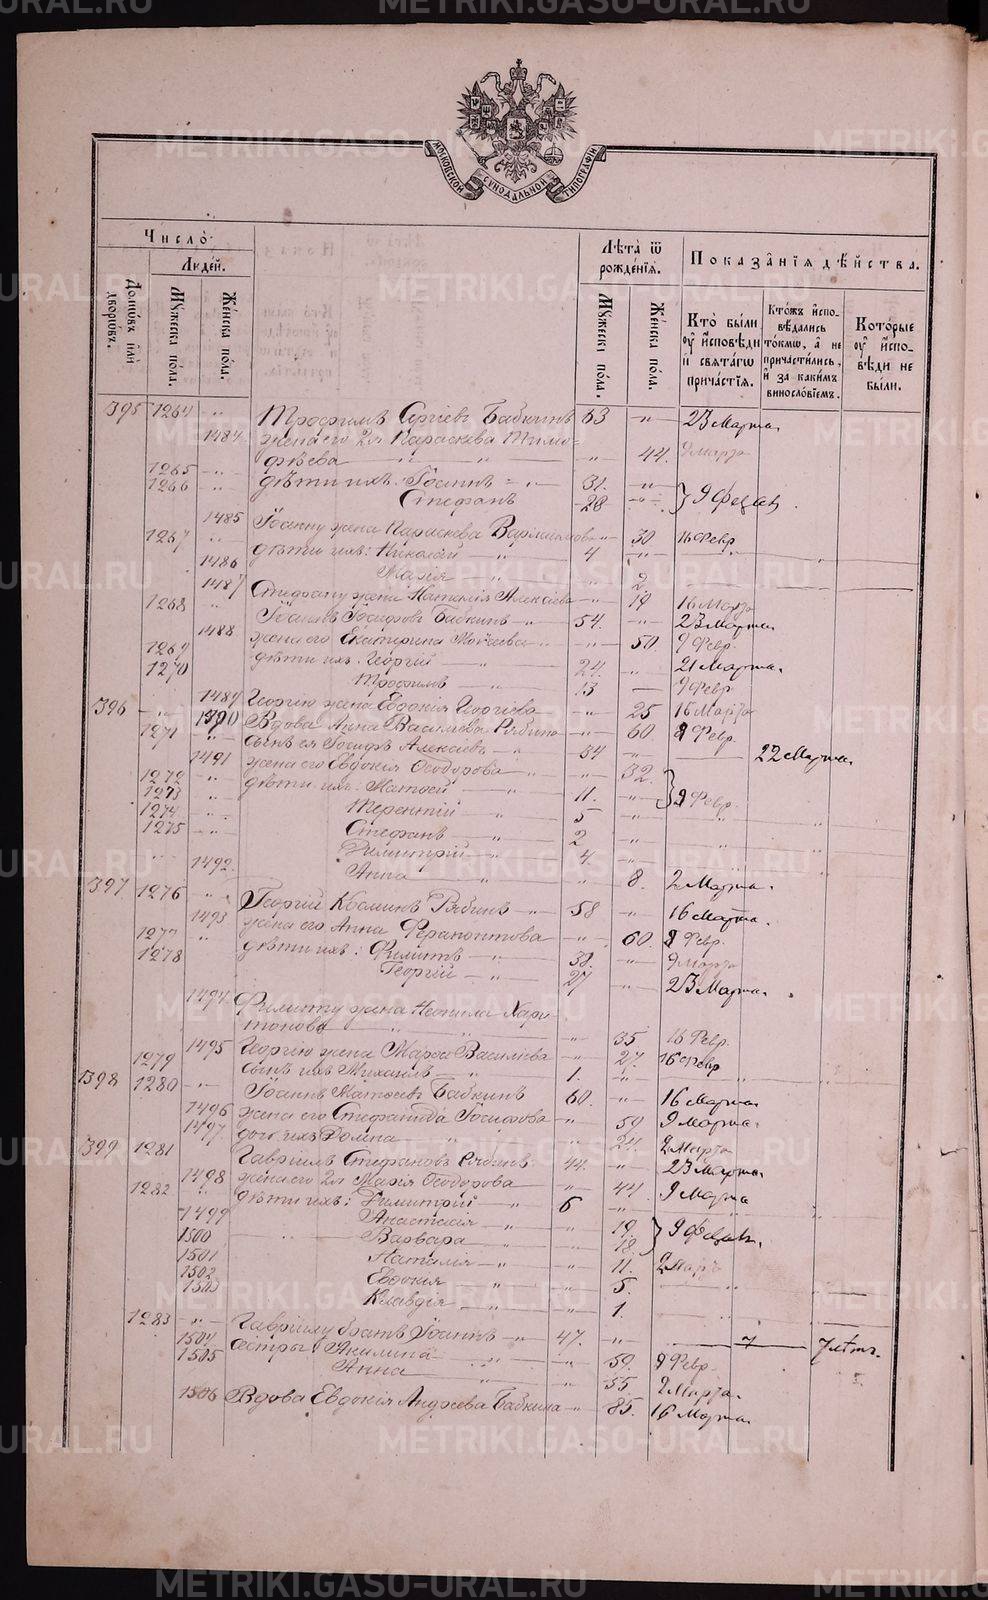 METRIKI.GASO-URAL.RU
МОСКОВСКОЙ СУНОДАЛЬНОЙ ТИПОГРАФІИ
Число̀
Людей.
Домѡвъ илѝ дворѡвъ.
Мꙋжеска пола.
Женска пола.
Лѣта ѿ рожденїѧ.
Мꙋжеска пола.
Женска пола.
Показанїѧ дѣйства.
Кто были ᲂу исповѣди и свѧтагѡ причастїѧ.
Ктожъ исповѣдались токмѡ, а не причастились, и за какимъ винословїемъ.
Которые ᲂу исповѣди не были.
395 1264 „ Трофимъ Сергіевъ Бабкинъ 63 „ 23 Марта
1484 жена его 2я Параскева Тимо-
фѣева „ „ „ 44. 9 Марта
1265 „ дѣти ихъ: Іоаннъ „ 31. „
1266 „ Стефанъ 28 „ } 9 Февр.
1485 Іоанну жена Параскева Варлаамова „ 30 16 Февр
1267 „ дѣти ихъ: Николай „ 4 „
1486 Марія „ „ 2
1487 Стефану жена Наталія Алексіева „ 19 16 Марта
1268 „ Іоаннъ Іосифовъ Бабкинъ „ 54. „ 23 Марта
1488 жена его Екатерина Мойсеева „ 50 9 Февр.
1269 дѣти ихъ: Георгій „ 24. „ 21 Марта
1270 Трофимъ 13 — 9 Февр
1489 Георгію жена Евдокія Георгіева „ 25 16 Марта
396 1490 Вдова Анна Василіева Рябина „ 60 9 Февр.
1271 „ сынъ ея Іосифъ Алексіевъ „ 34 „ 22 Марта
1491 жена его Евдокія Ѳеодорова „ 32.
1272 „ дѣти ихъ: Матѳей „ 11. „ } 9 Февр.
1273 „ Терентій „ 5 „
1274 „ Стефанъ „ 2 „
1275 „ Димитрій „ 4 „
1492. Анна „ „ 8. 2 Марта.
397 1276 „ Георгій Космынъ Рябинъ „ 58 „ 16 Марта
1493 жена его Анна Ферапонтова „ 60 9 Февр.
1277 „ дѣти ихъ: Филиппъ „ 38. „ 9 Марта
1278 Георгій „ 27 „ 23 Марта.
1494 Филиппу жена Неонила Хари-
тонова „ „ 35 16 Февр.
1495 Георгію жена Марѳа Василіева „ 27. 16 Февр
1279 сынъ ихъ Михаилъ „ 1. „
398 1280 „ Іоаннъ Матѳеевъ Бабкинъ 60. „ 16 Марта
1496 жена его Стефанида Іосифова „ 59 9 Марта.
1497. дочь ихъ Домна „ „ 24. 2 Марта
399 1281 Гавріилъ Стефановъ Рябинъ 44. „ 23 Марта
1498 жена его 2я Марія Ѳеодорова „ 44. 9 Марта
1282 „ дѣти ихъ: Димитрій „ 6 „
1499 Анастасія „ „ 19. } 9 Февр.
1500 Варвара „ „ 18.
1501 Наталія „ „ 11. 2 Март
1502 Евдокія „ „ 5.
1503 Клавдія „ „ 1.
1283 „ Гавріилу братъ Іоаннъ „ 47. „ 7 7 лѣтъ.
1504 сестры: Акилина „ 59. 9 Февр.
1505 Анна „ „ 55 2 Марта.
1506 Вдова Евдокія Андреева Бабкина „ 85. 16 Марта